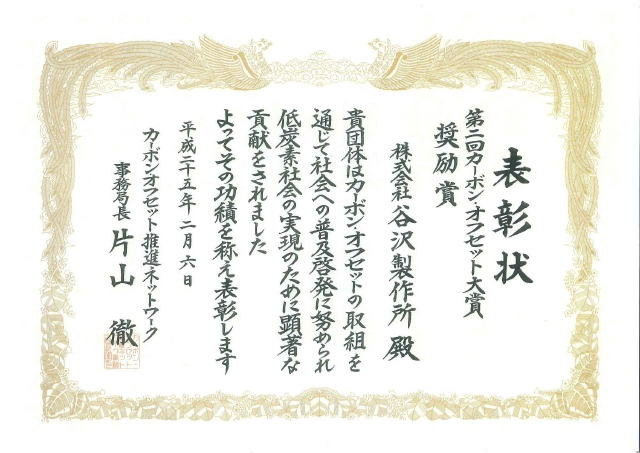 表彰状
第二回カーボン・オフセット大賞
奨励賞
株式会社谷沢製作所 殿
貴団体はカーボン・オフセットの取組を
通じて社会への普及啓発に努められ
低炭素社会の実現のために顕著な
貢献をされました
よってその功績を称え表彰します
平成二十五年二月六日
カーボンオフセット推進ネットワーク
事務局長 片山 徹